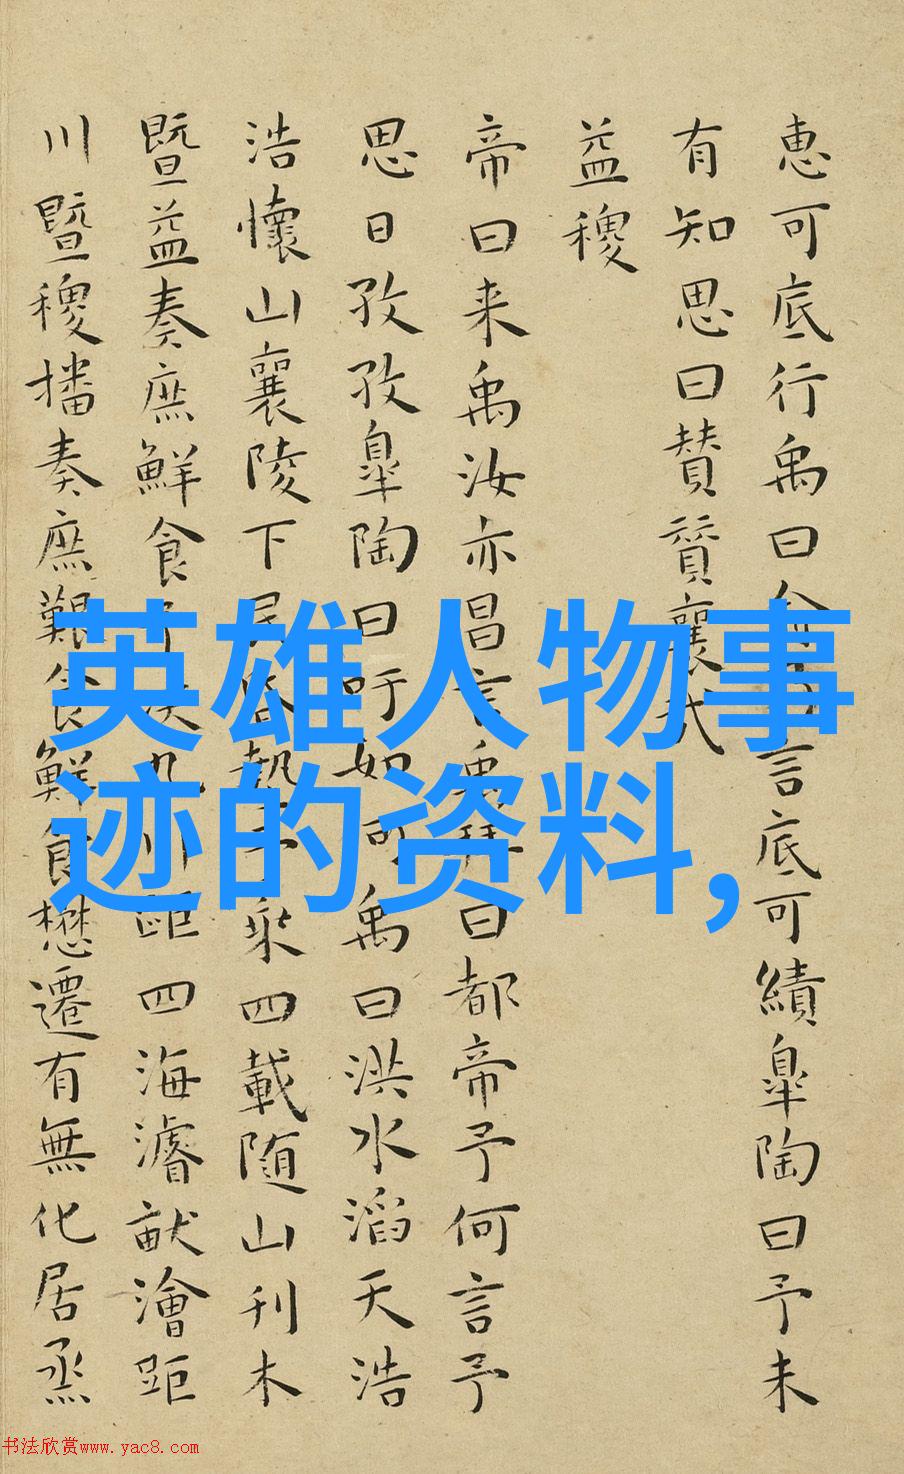 惠可底行禹曰言底可績皐陶曰予未
有知思曰賛賛襄
益稷
帝曰来禹汝亦昌言禹拜曰都帝予何言予
思日孜孜皐陶曰吁如何禹曰洪水滔天浩
浩懷山襄陵下民昏墊予乘四載随山刊木
暨益奏庶鮮食川距四海濬畎澮距
川暨稷播奏庶艱食鮮食懋遷有無化居烝
英雄人物事
迹的资料,
书法欣赏www.yac8.com